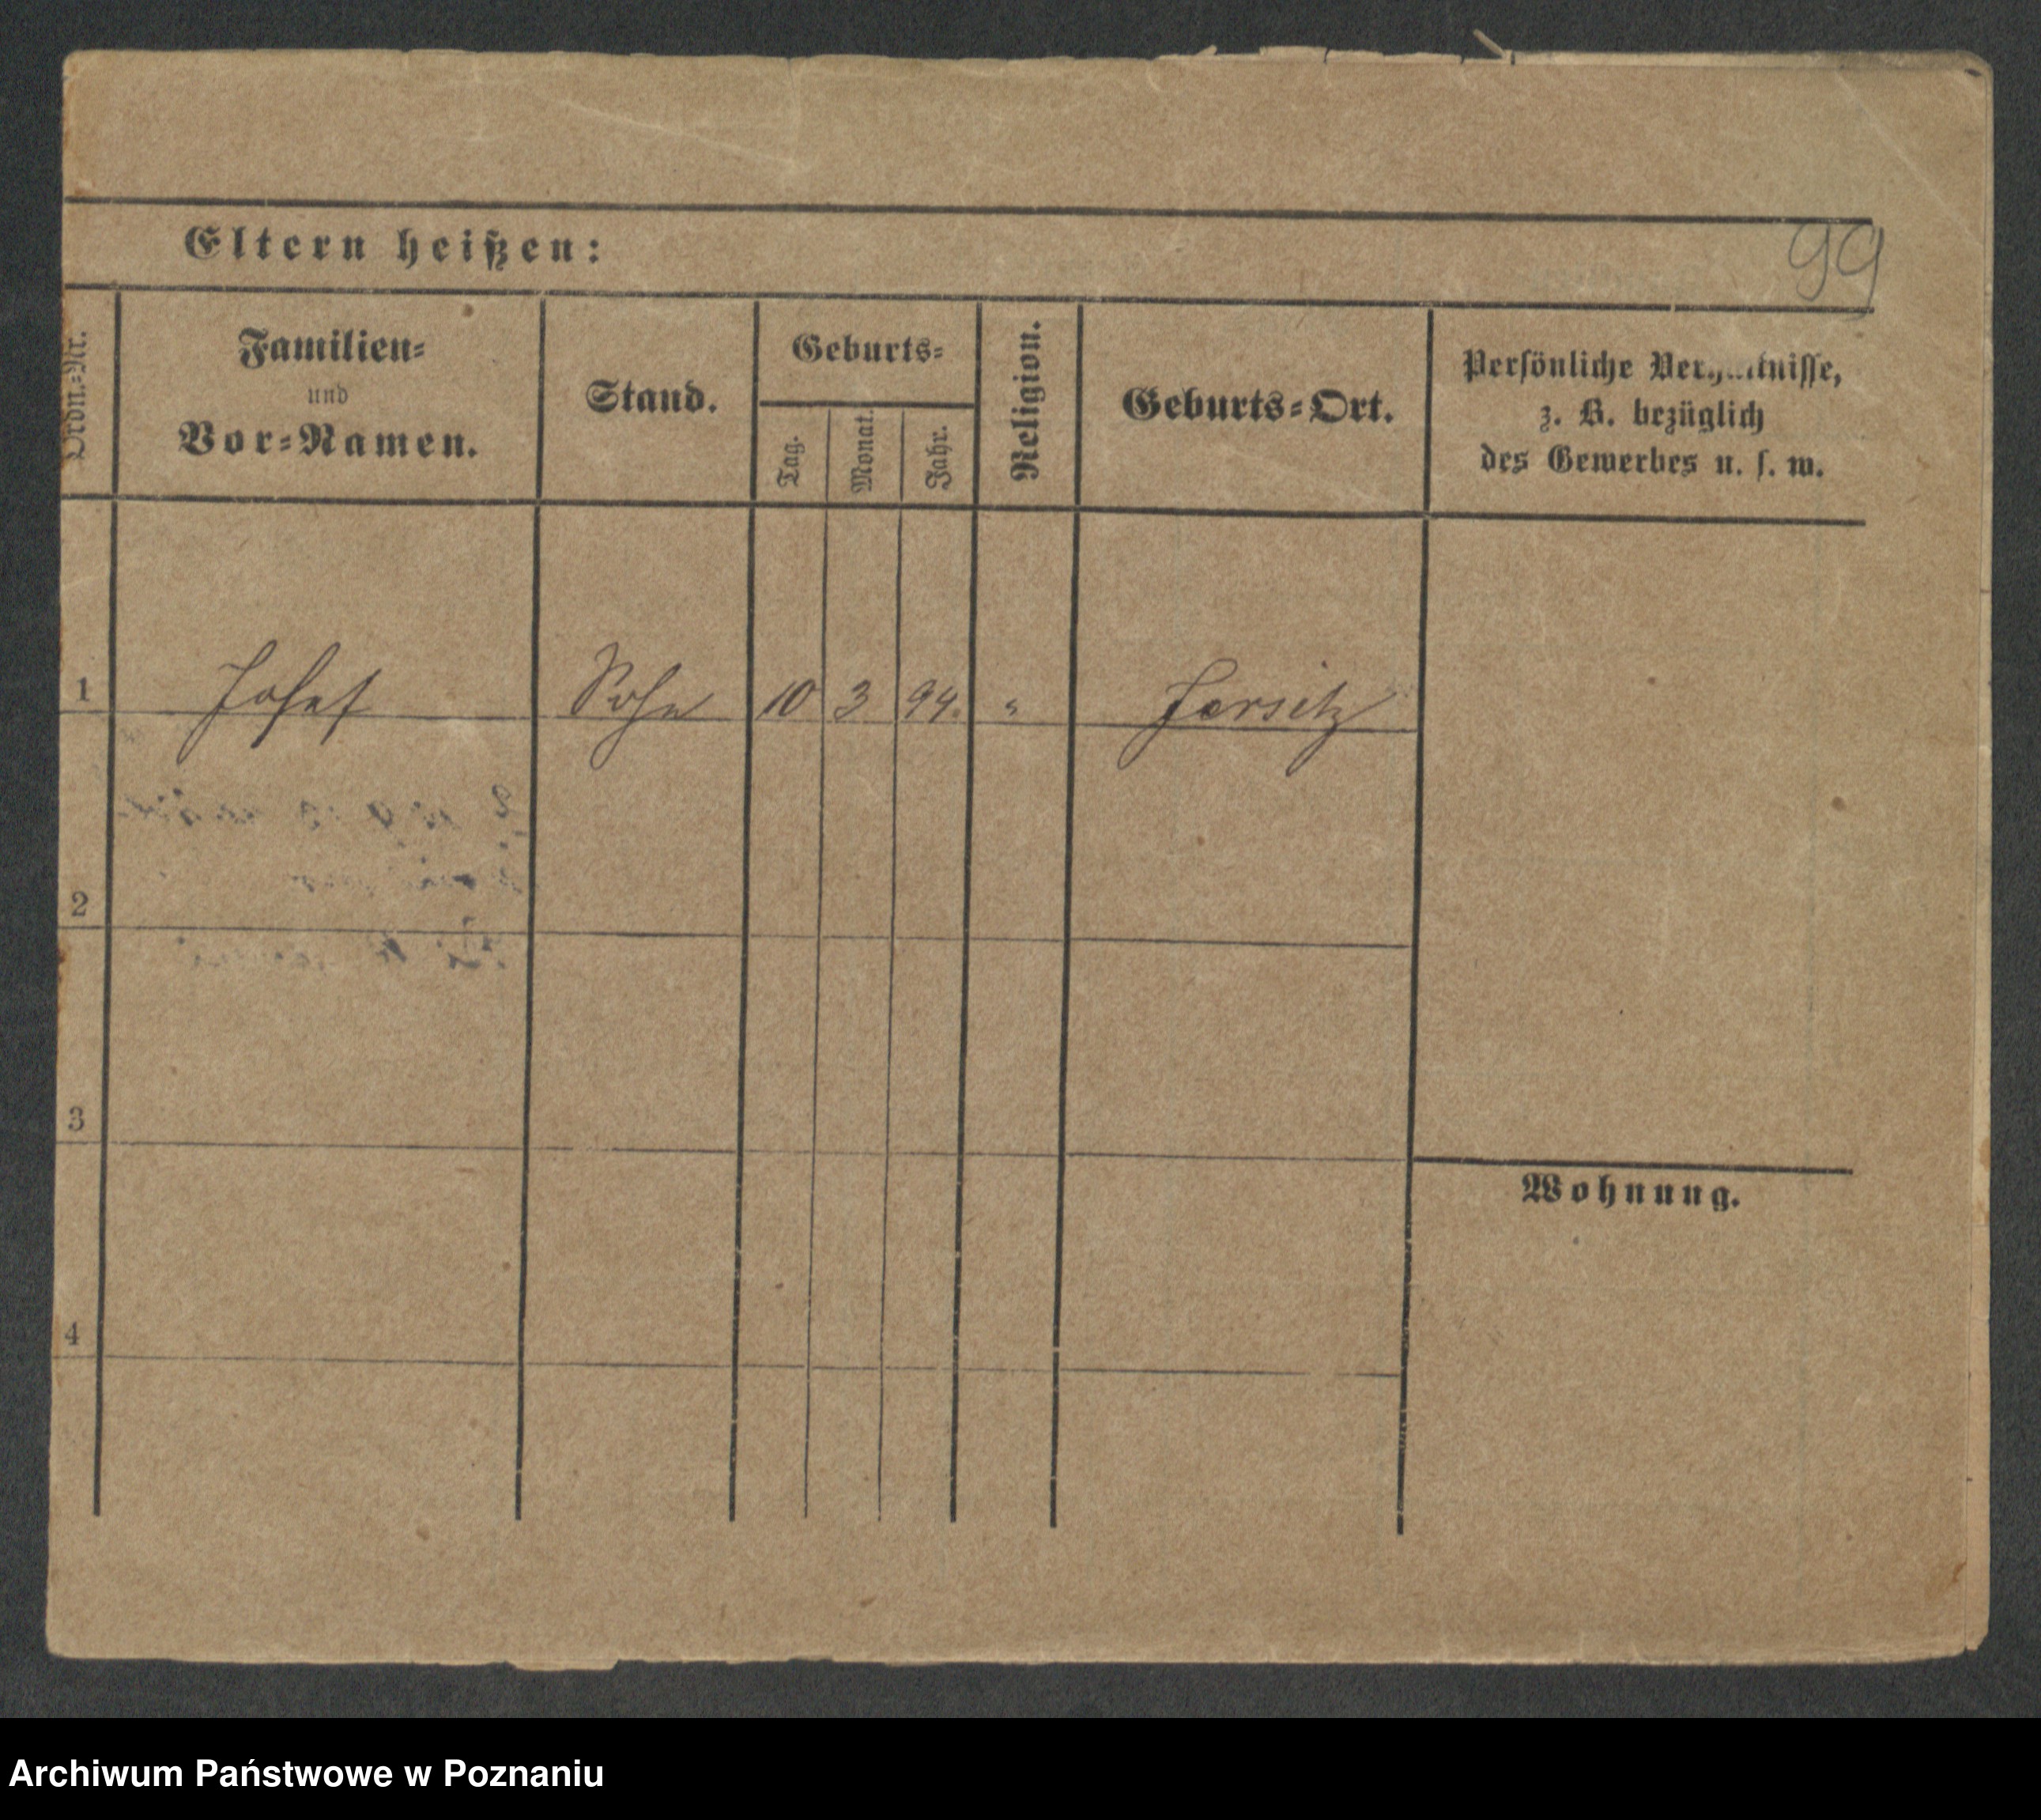 99
Eltern heißen:
Ordn.=Nr.
Familien=
und
Vor=Namen.
Stand.
Geburts=
Tag.
Monat.
Jahr.
Religion.
Geburts=Ort.
Persönliche Verhältnisse,
z. B. bezüglich
des Gewerbes u. s. w.
1 Josef Sohn 10 3 94. " Jersitz
2
3
Wohnung.
4
Archiwum Państwowe w Poznaniu